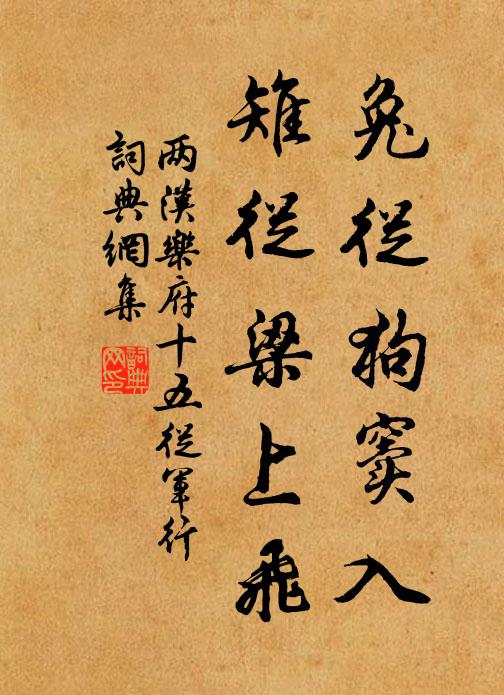 兔從狗竇入
雉從梁上飛
两漢樂府十五從軍行
詞典網集
詞典
网印